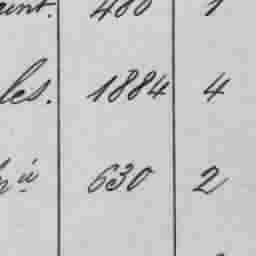 480 1
les. 1884 4
630 2